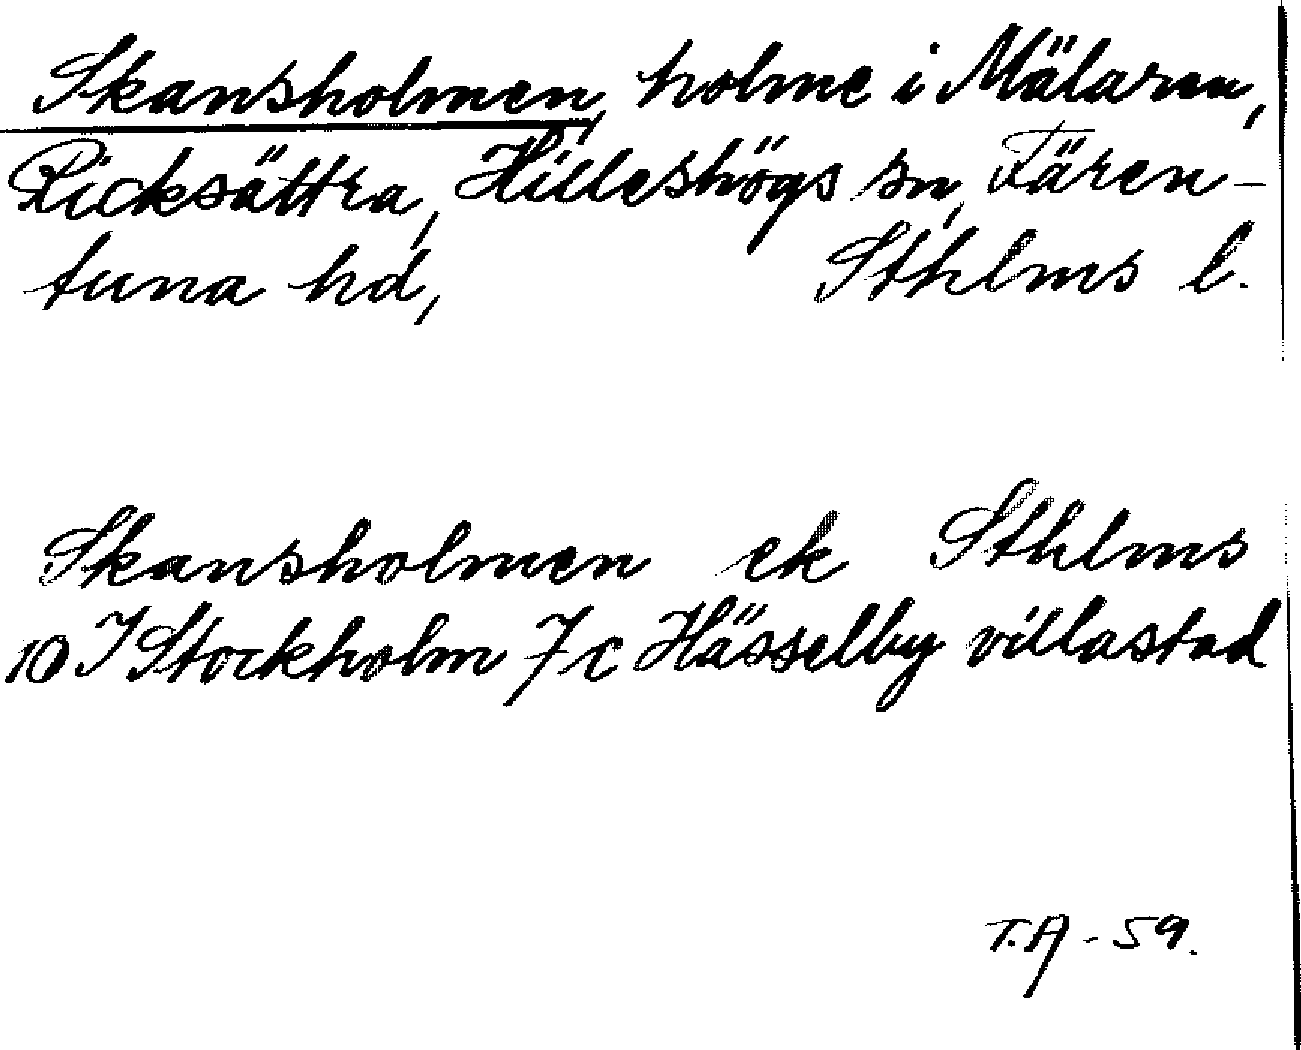 Skansholmen, holme i Mälaren,
Ricksättra, Hilleshögs sn, Fären-
tuna hd, Sthlms l.
Skansholmen ek Sthlms
10 I Stockholm 7c Hässelby villastad
T.A - 59.